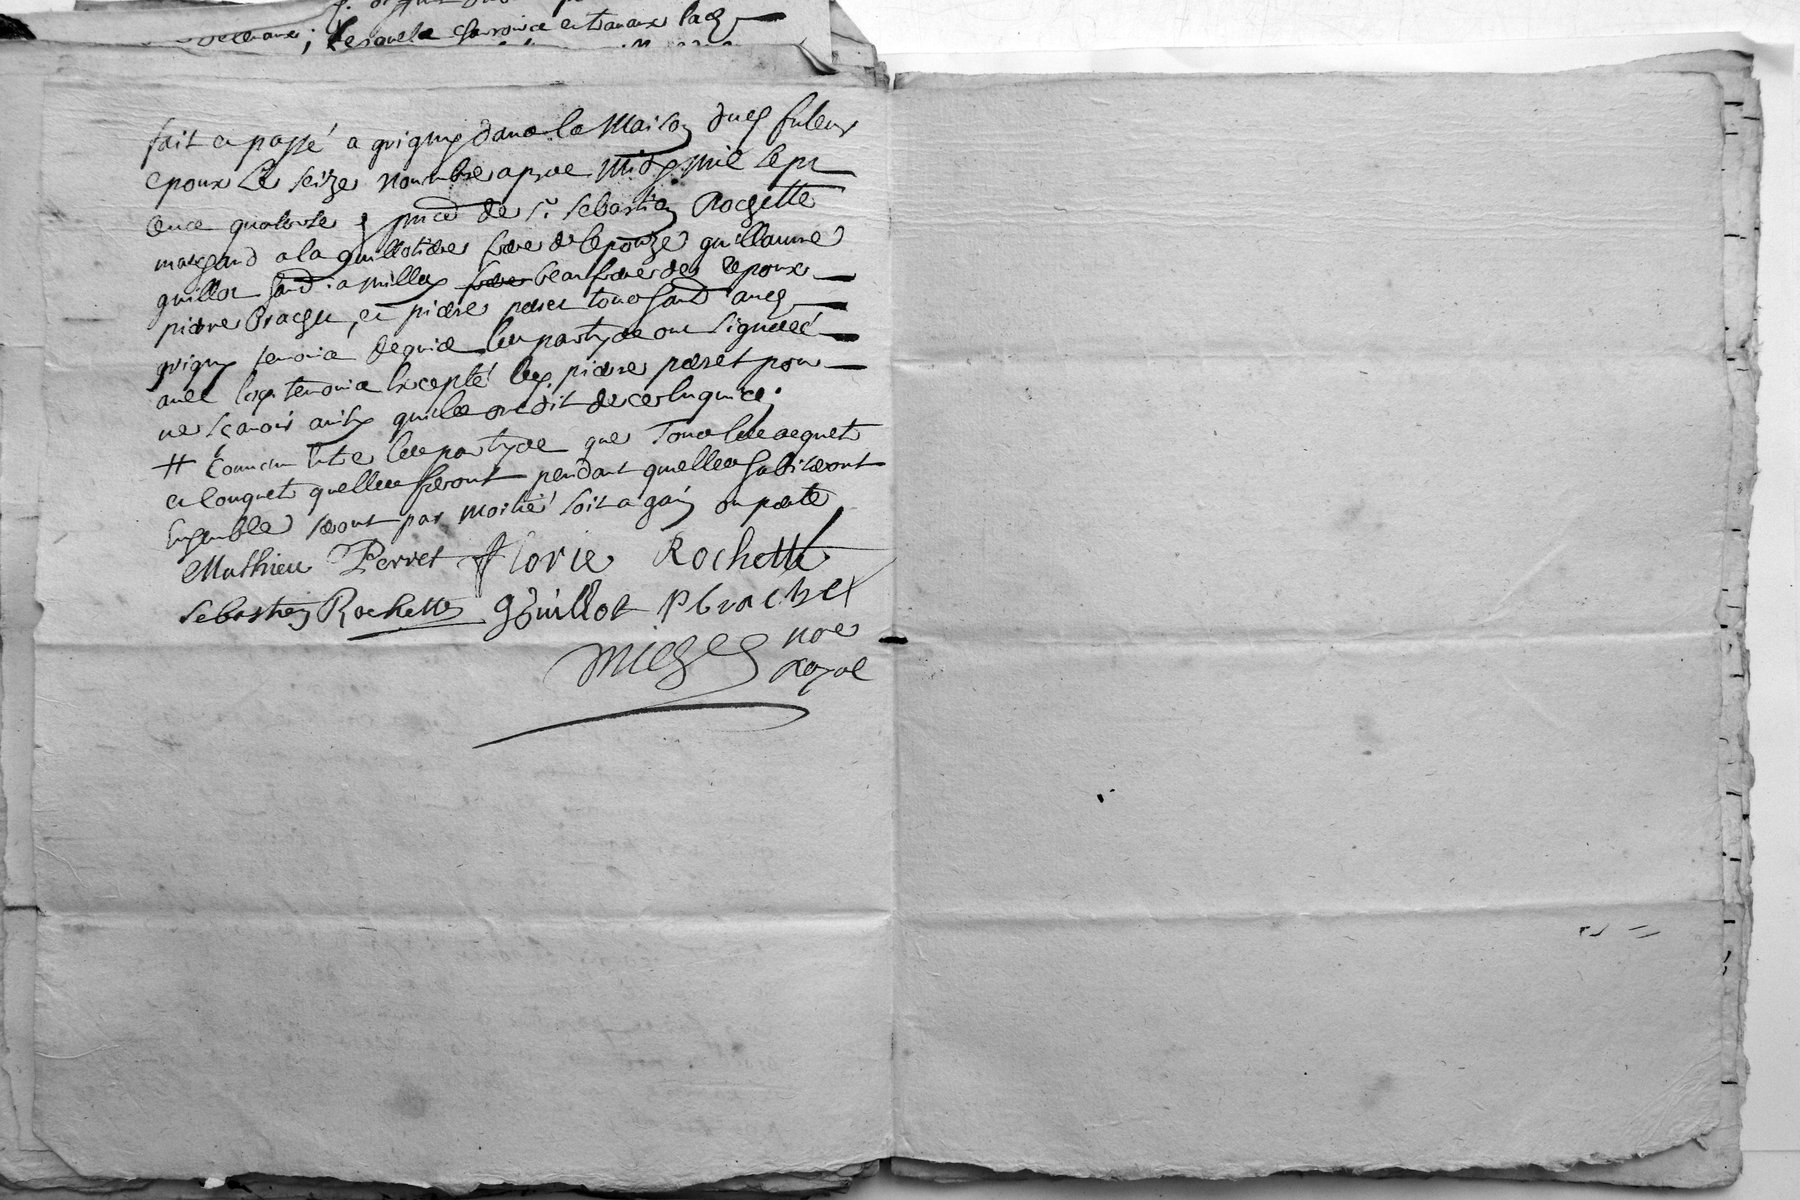 lesquels
fait et passé a grigny dans la Maison dud futeur
epoux le seize novembre apres midy mil sept
cens quatorse p̃nce de Sr. Sebastien Rochette
marchand a la guillotiere frere de lepouze guillaume
guillot hand. a millery frere beaufrere de lepoux
pierre Brachet, et pierre peret tous hand aud
grigny temoins requis les partyes ont signeés
avec lesd temoins Excepté led. pierre peret pour
ne sçavoir ainsy quil a dit de ce Enquis;
# Convenu Entre les partyes que Tous les acquets
et Conquets quelles feront pendant quelles habiteront
Ensemble seront par moitié soit a gain ou perte
Mathieu Perret florie Rochette
Sebastien Rochette Guillot P brachet
noe
royal